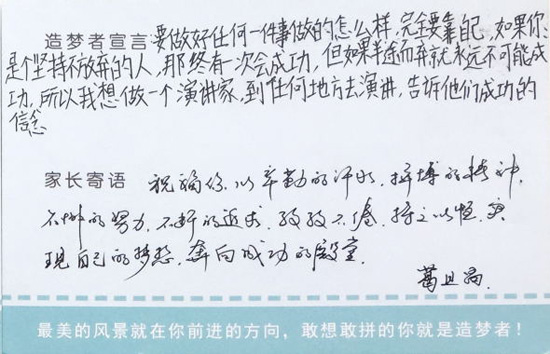 造梦者宣言:要做好任何一件事做的怎么样,完全要靠自己,如果你
是个坚持不放弃的人,那终有一次会成功,但如果半途而弃就永远不可能成
功,所以我想做一个演讲家,到任何地方去演讲,告诉他们成功的
信念
家长寄语 祝福你,以辛勤的汗水,拼搏的精神,
不懈的努力,不断的追求,孜孜不倦,持之以恒,实
现自己的梦想,奔向成功的殿堂.
葛
最美的风景就在你前进的方向,敢想敢拼的你就是造梦者!